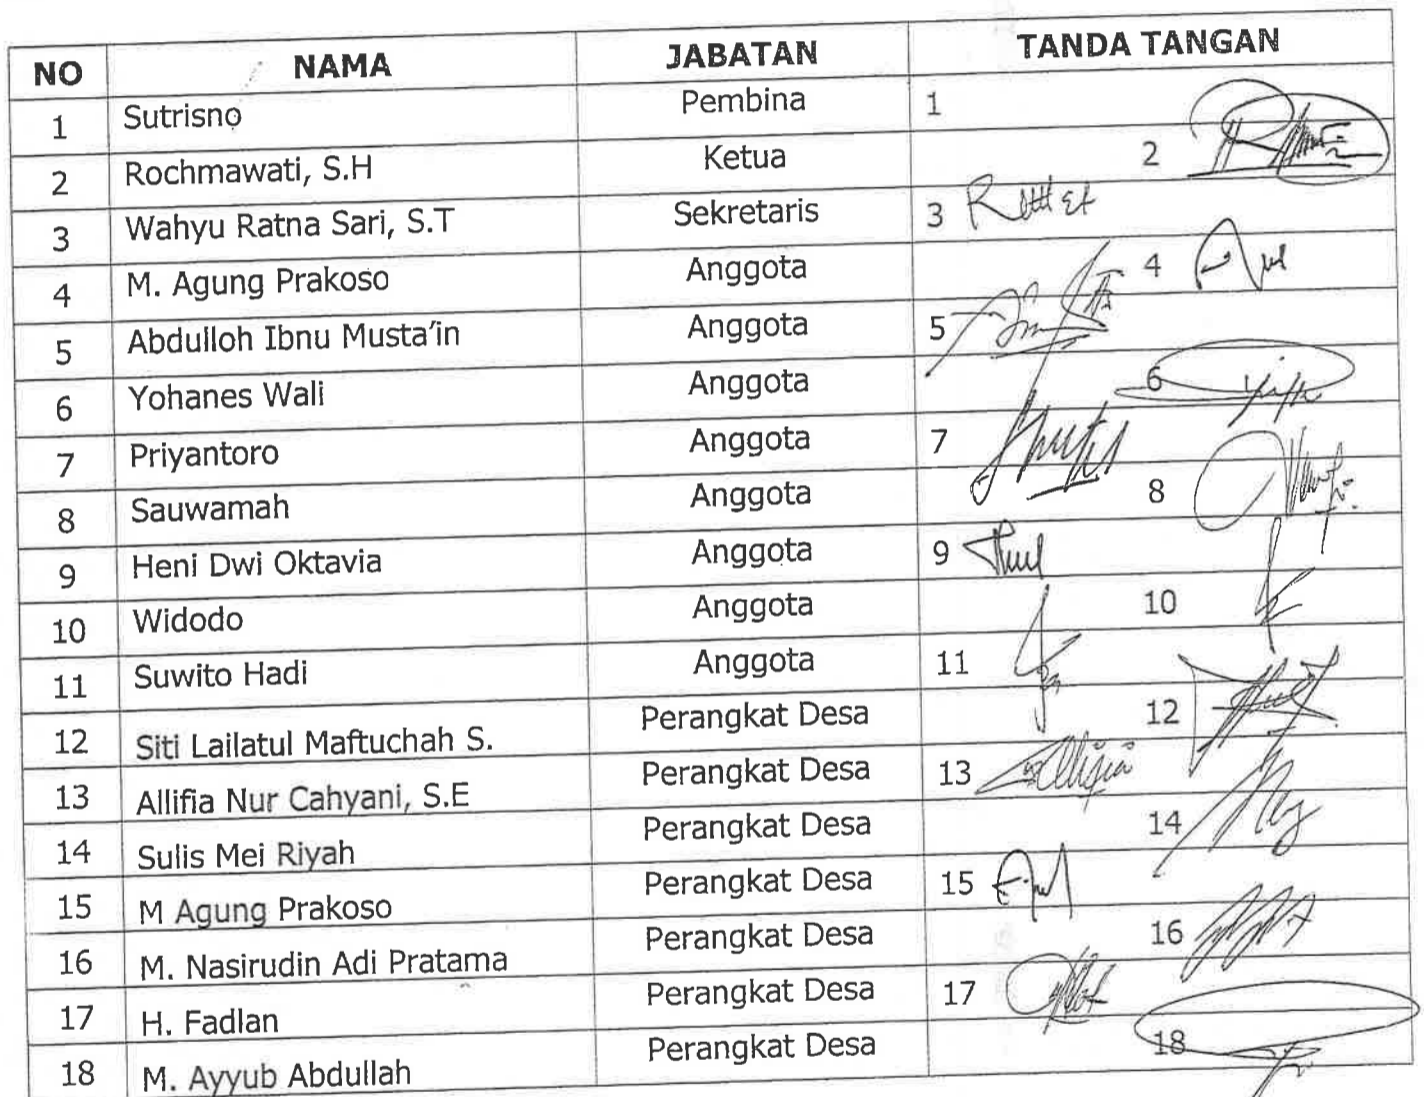 NO NAMA JABATAN TANDA TANGAN
1 Sutrisno Pembina 1
2 Rochmawati, S.H Ketua 2
3 Wahyu Ratna Sari, S.T Sekretaris 3
4 M. Agung Prakoso Anggota 4
5 Abdulloh Ibnu Musta'in Anggota 5
6 Yohanes Wali Anggota 6
7 Priyantoro Anggota 7
8 Sauwamah Anggota 8
9 Heni Dwi Oktavia Anggota 9
10 Widodo Anggota 10
11 Suwito Hadi Anggota 11
12 Siti Lailatul Maftuchah S. Perangkat Desa 12
13 Allifia Nur Cahyani, S.E Perangkat Desa 13
14 Sulis Mei Riyah Perangkat Desa 14
15 M Agung Prakoso Perangkat Desa 15
16 M. Nasirudin Adi Pratama Perangkat Desa 16
17 H. Fadlan Perangkat Desa 17
18 M. Ayyub Abdullah Perangkat Desa 18